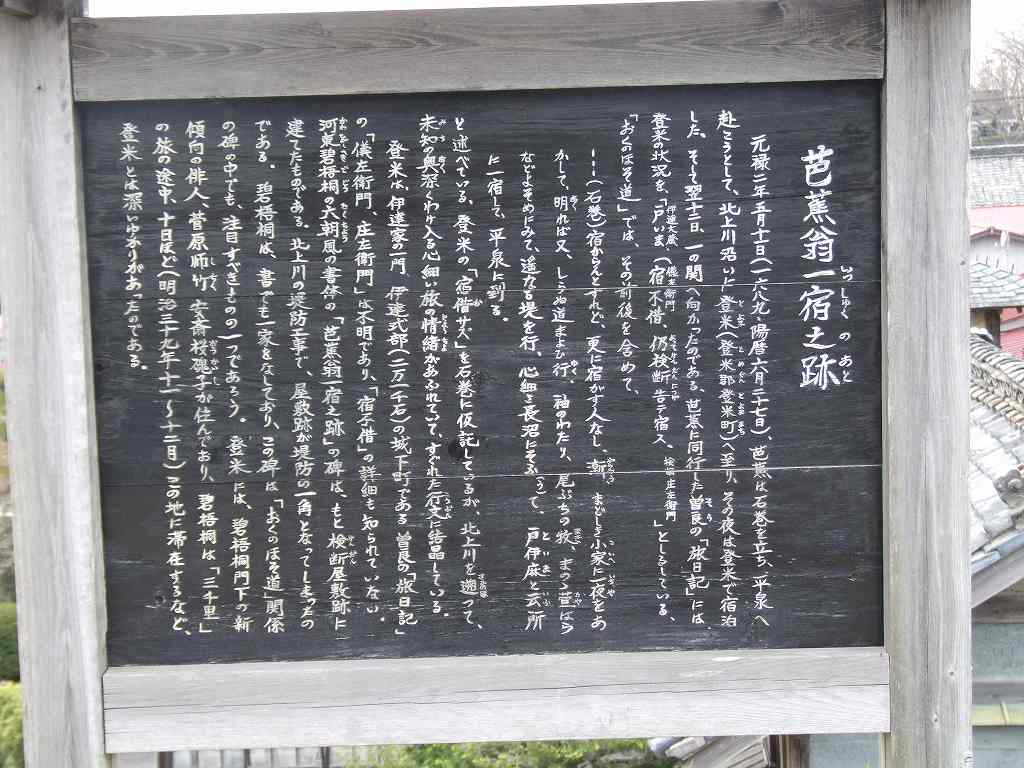 芭蕉翁一宿之跡
元禄二年五月十日(一六八九、陽暦六月二十七日)、芭蕉は石巻を立ち、平泉へ
赴こうとして、北上川沿いに登米(登米郡登米町)へ至り、その夜は登米で宿泊
した。そして翌十二日、一の関へ向かったのである。芭蕉に同行した曽良の「旅日記」には、
登米の状況を、「戸いま(伊達大蔵)儀左衛門宿不借、仍検断告テ宿ス。検断庄左衛門」としるしている。
「おくのほそ道」では、その前後を含めて、
―(石巻)宿からんとすれど、更に宿かす人なし。漸、まどしき小家に一夜をあ
かして、明れば又、しらぬ道まよひ行。袖のわたり、尾ぶちの牧、まのゝ萱はら
などよそめにみて、遥なる堤を行。心細き長沼にそふ(う)て、戸伊麻と云所
に一宿して、平泉に到る。
と述べている。登米の「宿借サズ」を石巻に仮記しているが、北上川を遡って、
未知の奥深くわけ入る心細い旅の情緒があふれていて、すぐれた行文に結晶している。
登米は、伊達家の一門 伊達式部(二万一千石)の城下町である。曽良の「旅日記」
の「儀左衛門、庄左衛門」は不明であり、「宿不借」の詳細も知られていない。
河東碧梧桐の六朝風の書体の「芭蕉翁一宿之跡」の碑は、もと検断屋敷跡に
建てたものである。北上川の堤防工事で、屋敷跡が堤防の一角となってしまったの
である。碧梧桐は、書でも一家をなしており、この碑は「おくのほそ道」関係
の碑の中でも、注目すべきものの一つであろう。登米には、碧梧桐門下の新
傾向の俳人、菅原師竹、安斎桜磈子が住んでおり、碧梧桐は「三千里」
の旅の途中、十日ほど(明治三十九年十一〜十二月)この地に滞在するなど、
登米とは深いゆかりがあったのである。